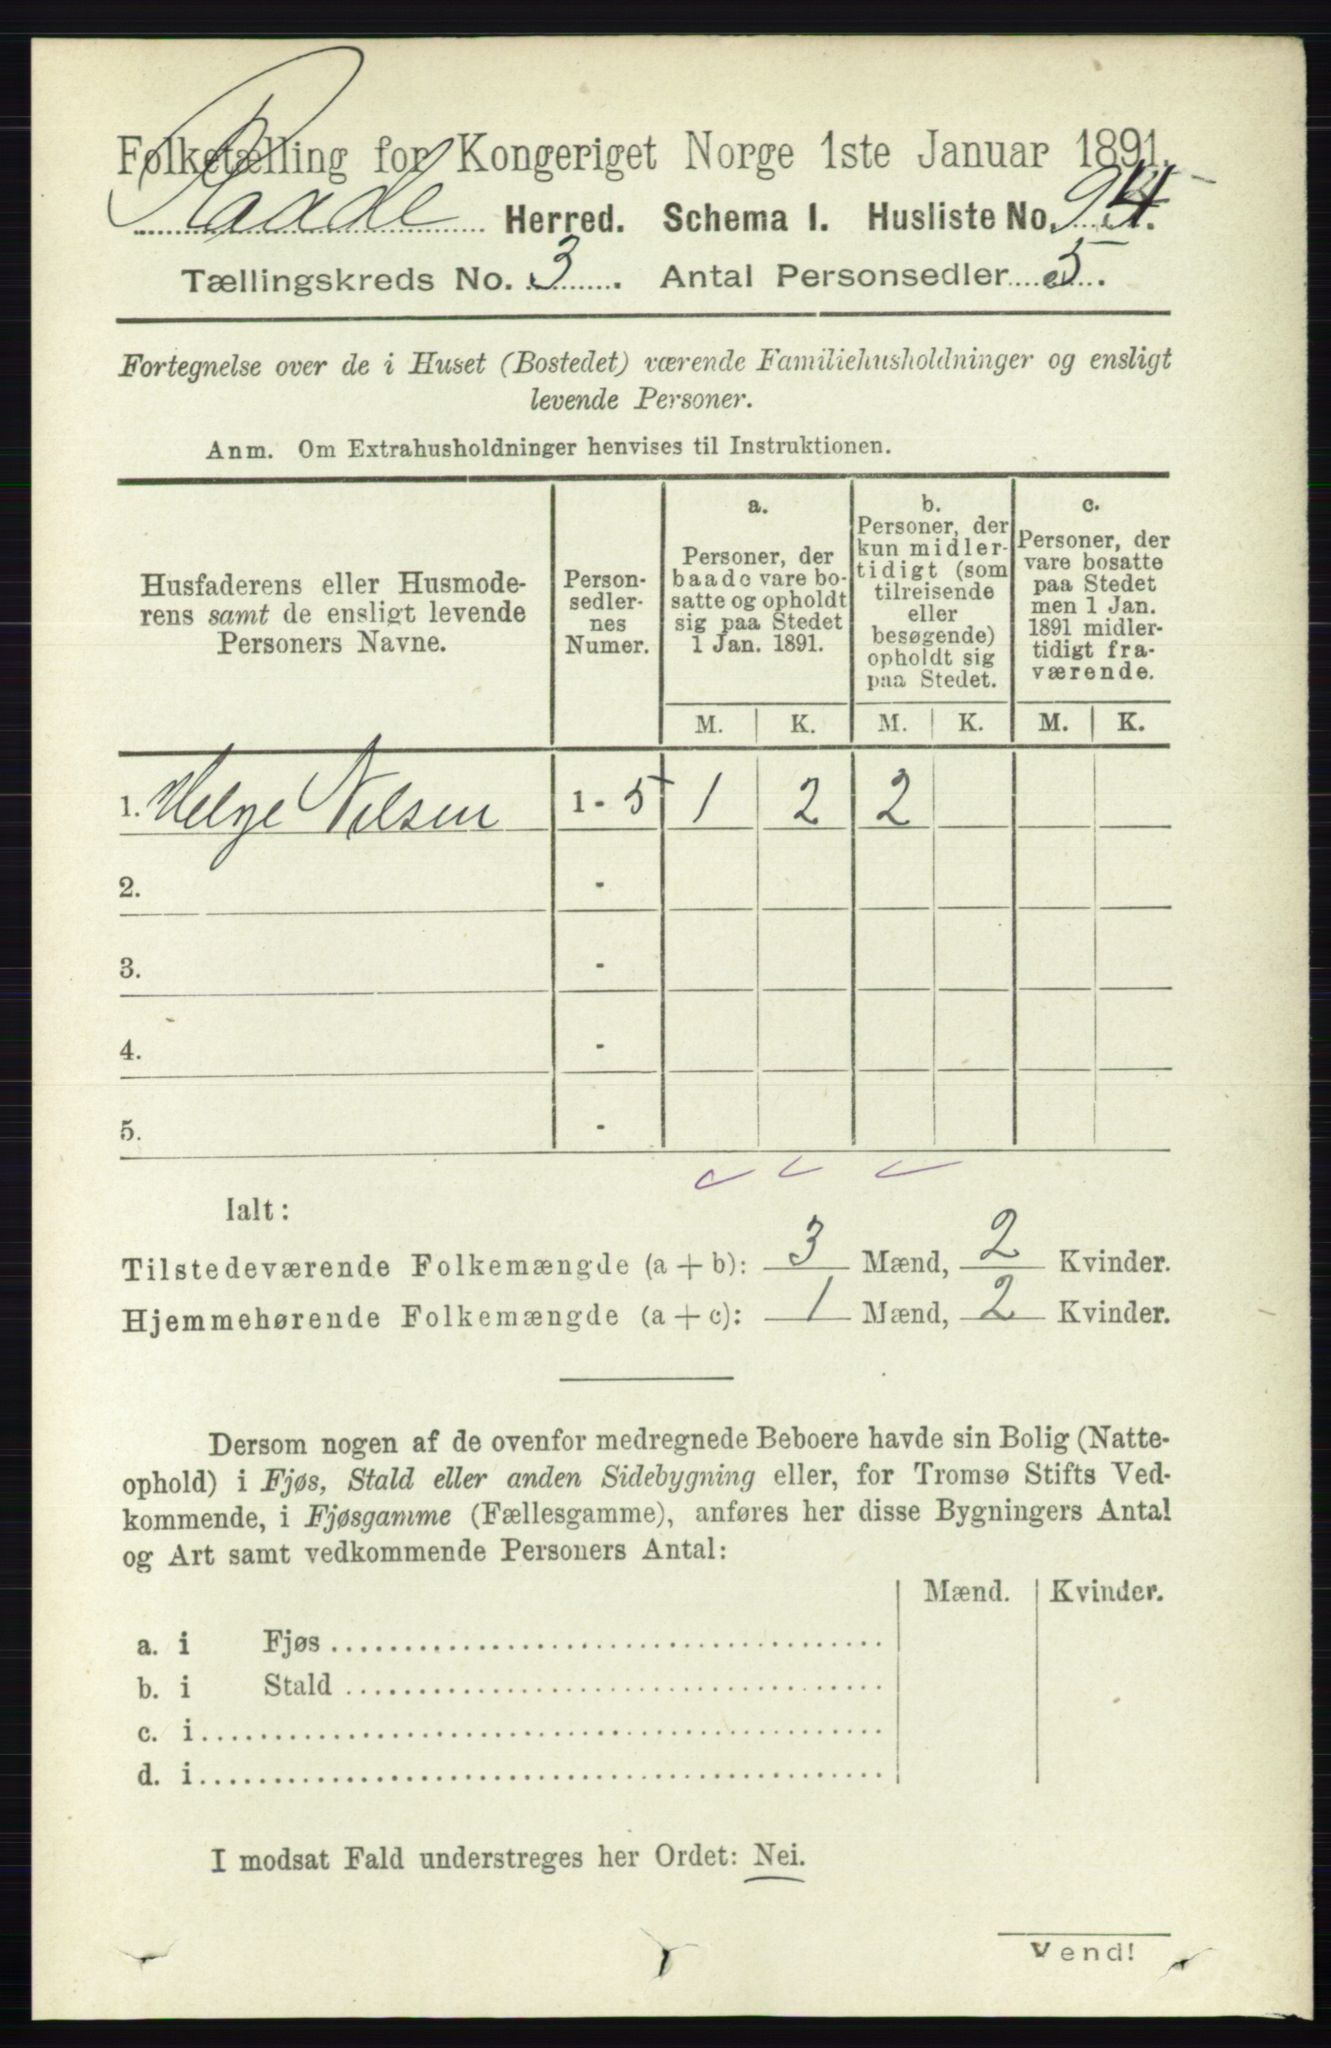 Folketælling for Kongeriget Norge 1ste Januar 1891.
Raade Herred. Schema I. Husliste No. 94.
Tællingskreds No. 3. Antal Personsedler 5.
Fortegnelse over de i Huset (Bostedet) værende Familiehusholdninger og ensligt
levende Personer.
Anm. Om Extrahusholdninger henvises til Instruktionen.
Husfaderens eller Husmode-
rens samt de ensligt levende
Personers Navne.
Person-
sedler-
nes
Numer.
a.
Personer, der
baade vare bo-
satte og opholdt
sig paa Stedet
1 Jan. 1891.
b.
Personer, der
kun midler-
tidigt (som
tilreisende
eller
besøgende)
opholdt sig
paa Stedet.
c.
Personer, der
vare bosatte
paa Stedet
men 1 Jan.
1891 midler-
tidigt fra-
værende.
M. K. M. K. M. K.
1. Helge Nilsen 1 - 5 1 2 2
2. -
3. -
4. -
5. -
Ialt:
Tilstedeværende Folkemængde (a + b): 3 Mænd, 2 Kvinder.
Hjemmehørende Folkemængde (a + c): 1 Mænd, 2 Kvinder.
Dersom nogen af de ovenfor medregnede Beboere havde sin Bolig (Natte-
ophold) i Fjøs, Stald eller anden Sidebygning eller, for Tromsø Stifts Ved-
kommende, i Fjøsgamme (Fællesgamme), anføres her disse Bygningers Antal
og Art samt vedkommende Personers Antal:
Mænd. Kvinder.
a. i Fjøs
b. i Stald
c. i
d. i
I modsat Fald understreges her Ordet: Nei.
Vend!